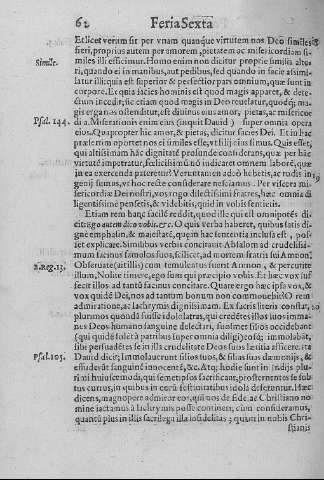 62 Feria Sexta
Et licet verum sit per vnam quamque virtutem nos Deo similes
fieri, proprius autem per amorem, pietatem ac misericordiam si-
Simile. miles illi efficimur. Homo enim non dicitur proprie similis alte-
ri, quando ei in manibus, aut pedibus, sed quando in facie assimi-
latur illi; quia est superior & perfectior pars omnium, quæ sunt in
corpore. Ex quia facies hominis est quod magis apparet, & dete-
ctum incedit, sic etiam quod magis in Deo reuelatur, quodq; ma-
gis ergà nos ostenditur, est diuinus eius amor, pietas, ac misericor-
Psal. 144. dia. Miserationis enim eius (inquit Dauid) super omnia opera
eius. Quapropter hic amor, & pietas, dicitur facies Dei. Et in hac
præsertim oportet nos ei similes esse, vt filij eius simus. Quis esset,
qui altissimam hãc dignitatẽ profunde considerans, quæ per hãc
virtutẽ impetratur, felicissimũ nõ iudicaret omnem laborẽ, quẽ
in ea exercenda pateretur? Veruntamen adeò hebetis, ac rudis in-
genij sumus, vt hoc recte considerare nesciamus. Per viscera mi-
sericordiæ Dei nostri, vos rogo dilectissimi fratres, hæc omnia di-
ligentissime pensetis, & videbitis, quid in vobis sentietis.
Etiam rem hanc facile reddit, quod ille qui est omnipotẽs di-
cit: ego autem dico vobis, &c. O quis verba haberet, quibus satis di-
gne emphasim, & maiestatẽ, quæ in hac sententia inclusa est, pos-
set explicare. Similibus verbis concitauit Absalom ad crudelissi-
mum facinus famulos suos, scilicet, ad mortem fratris sui Amnon:
2. Reg. 13. Obseruate (ait illis) cum temulentus fuerit Amnon, & percutite
illum, Nolite timere, ego sum qui præcipio vobis. Et hæc vox suf-
fecit illos ad tantũ facinus concitare. Quare ergo hæc ipsa vox, &
vox quidẽ Dei, nos ad tantum bonum non commouebit? O rem
admiratione, ac lachrymis dignissimam. Ex sacris literis constat,
plurimos quondã fuisse idololatras, qui credẽtes illos suos imma-
nes Deos humano sanguine delectari, suosmet filios occidebant
(qui quidẽ solẽt à patribus super omnia diligi) eosq; immolabãt,
sibi persuadẽtes se in illa crudelitate Deos suos lætitia afficere. Ita
Psal. 105. Dauid dicit; Immolauerunt filios suos, & filias suas dæmonijs, &
effuderũt sanguinẽ innocentẽ, &c. Atq; hodie sunt in Indijs plu-
rimi huiuscemodi, qui semetipsos sacrificant, prosternentes se sub-
tus currus, in quibus in eorũ festiuitatibus idola deferuntur. Hæc
dicens, magnopere admiror eos, qui nos de fide, ac Christiano no-
mine iactamus à lachrymis posse contineri, cum consideramus,
quantũ plus in illis sacrilega illa infidelitas; quàm in nobis Chri-
stianis